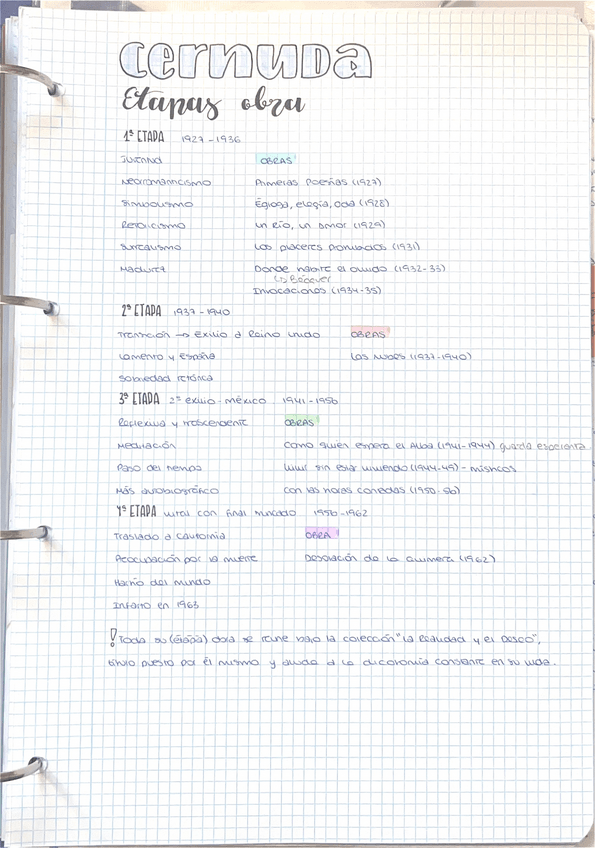 cernuda
Etapas obra
1ª ETAPA 1927-1936
Juvenil OBRAS
Neorromanticismo Primeras Poesías (1927)
Simbolismo Égloga, elegía, oda (1928)
Retoricismo un Río, un amor (1929)
Surrealismo Los placeres prohibidos (1931)
Madurez Donde habite el olvido (1932-33)
↳ Bécquer
Invocaciones (1934-35)
2ª ETAPA 1937-1940
Transición → Exilio a Reino Unido OBRAS
Lamento y España Las Nubes (1937-1940)
Sobriedad retórica
3ª ETAPA 2º exilio - méxico 1941-1956
Reflexiva y trascendente OBRAS
Meditación Como quien espera el Alba (1941-1944) guarda esperanza
Paso del tiempo Vivir sin estar viviendo (1944-49) - místicos
Más autobiográfico Con las horas contadas (1950-56)
4ª ETAPA vital con final truncado 1956-1962
Traslado a California OBRA
Preocupación por la muerte Desolación de la Quimera (1962)
Hastío del mundo
Infarto en 1963
! Toda su (etapa) obra se reune bajo la colección "La Realidad y el Deseo",
título puesto por él mismo y alude a la dicotomía constante en su vida.